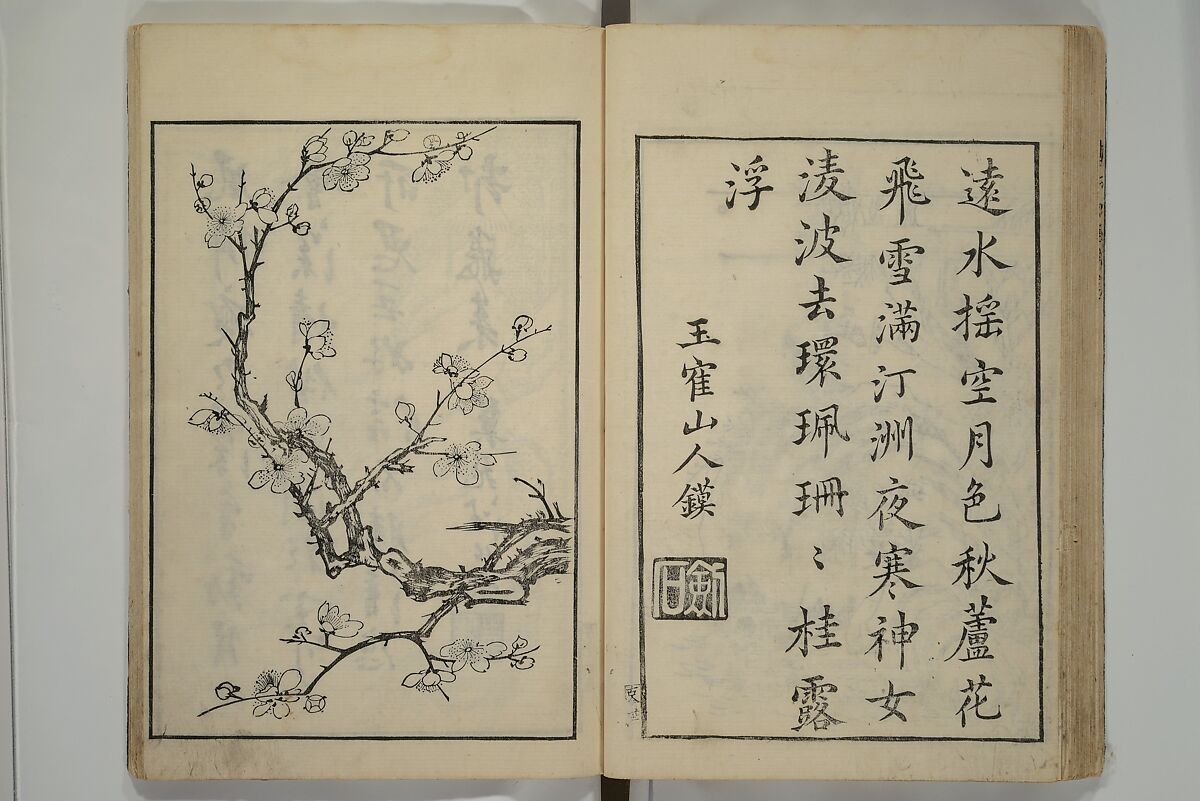 遠水揺空月色秋蘆花
飛雪滿汀洲夜寒神女
淩波去環珮珊〻桂露
浮
玉寉山人鏌